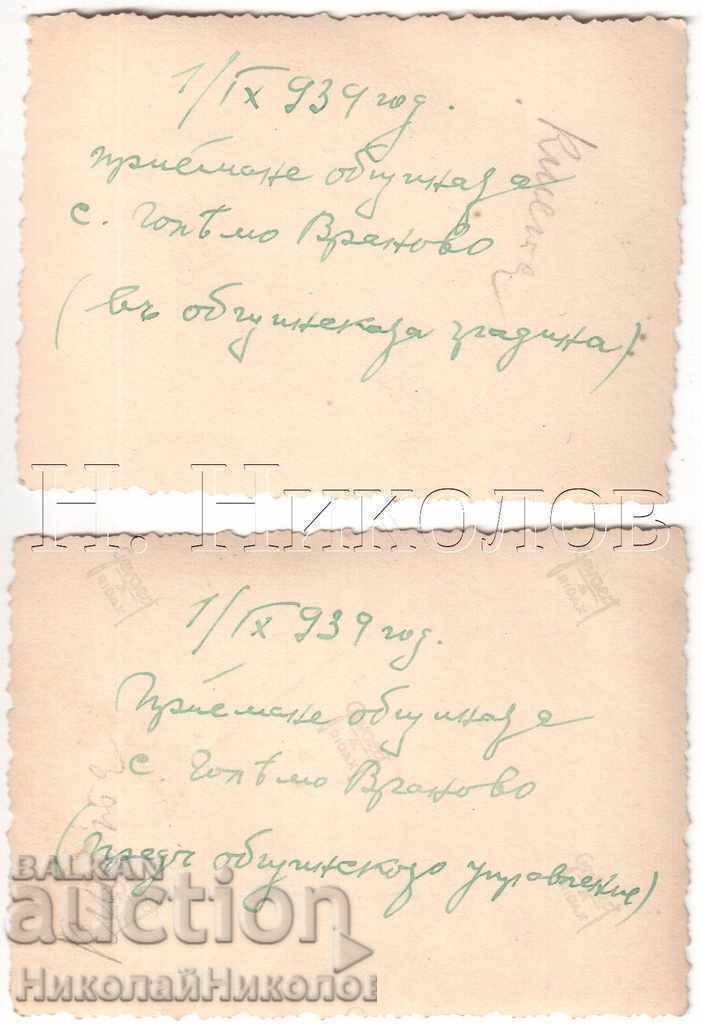 1/IX 939 год.
приемане общината
с. Голѣмо Враново
(въ общинската градина)
Н. Николов
1/IX 939 год.
Приемане общината
с. Голѣмо Враново
(предъ общинското управление)
BALKAN
auction
НиколайНиколов